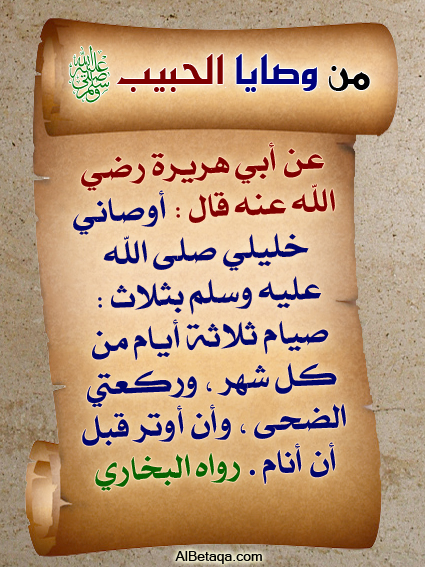 من وصايا الحبيب ﷺ
عن أبي هريرة رضي
الله عنه قال : أوصاني
خليلي صلى الله
عليه وسلم بثلاث :
صيام ثلاثة أيام من
كل شهر ، وركعتي
الضحى ، وأن أوتر قبل
أن أنام . رواه البخاري
AlBetaqa.com